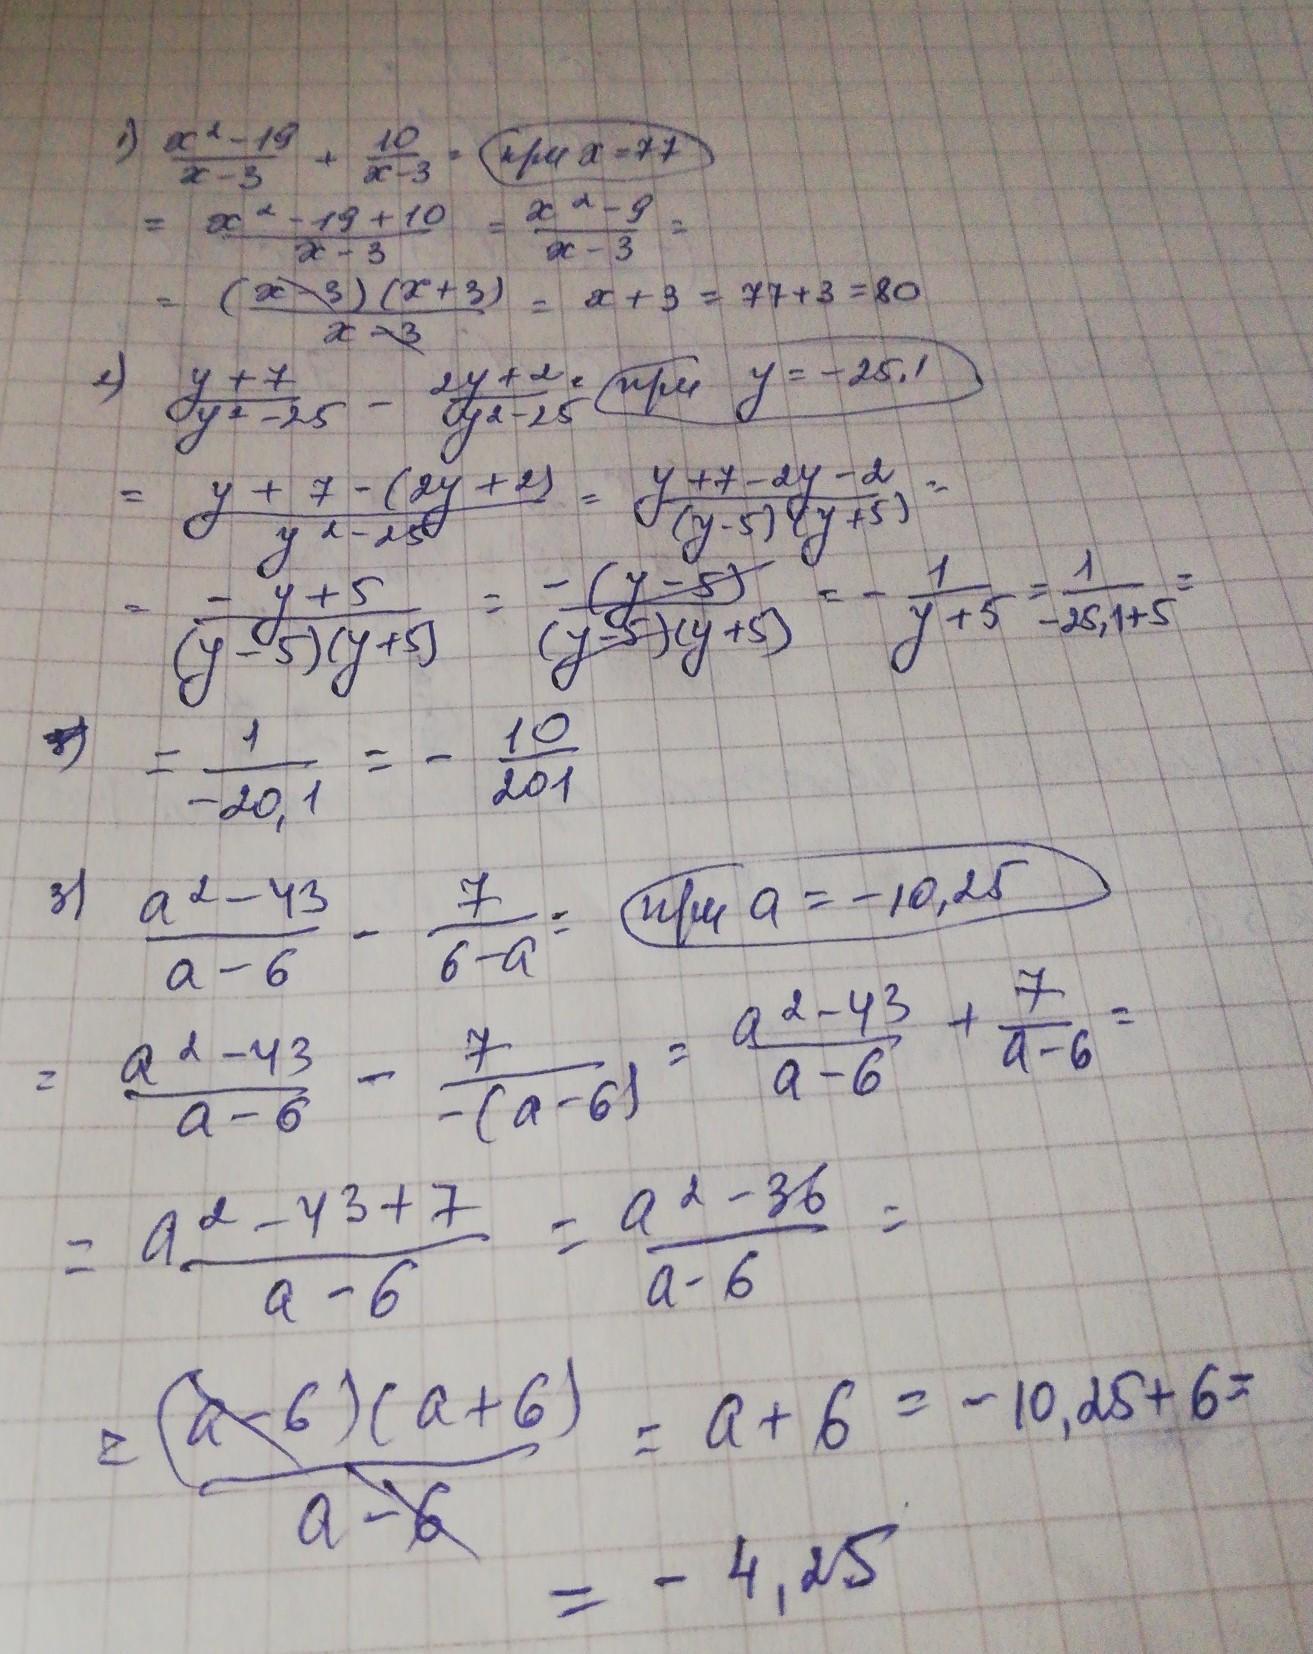 1) (x² - 19)/(x - 3) + 10/(x - 3) = при x = 77
= (x² - 19 + 10)/(x - 3) = (x² - 9)/(x - 3) =
= ((x - 3)(x + 3))/(x - 3) = x + 3 = 77 + 3 = 80
2) (y + 7)/(y² - 25) - (2y + 2)/(y² - 25) = при y = -25,1
= (y + 7 - (2y + 2))/(y² - 25) = (y + 7 - 2y - 2)/((y - 5)(y + 5)) =
= (-y + 5)/((y - 5)(y + 5)) = (-(y - 5))/((y - 5)(y + 5)) = - 1/(y + 5) = 1/(-25,1 + 5) =
= 1/(-20,1) = - 10/201
3) (a² - 43)/(a - 6) - 7/(6 - a) = при a = -10,25
= (a² - 43)/(a - 6) - 7/(-(a - 6)) = (a² - 43)/(a - 6) + 7/(a - 6) =
= (a² - 43 + 7)/(a - 6) = (a² - 36)/(a - 6) =
= ((a - 6)(a + 6))/(a - 6) = a + 6 = -10,25 + 6 =
= - 4,25